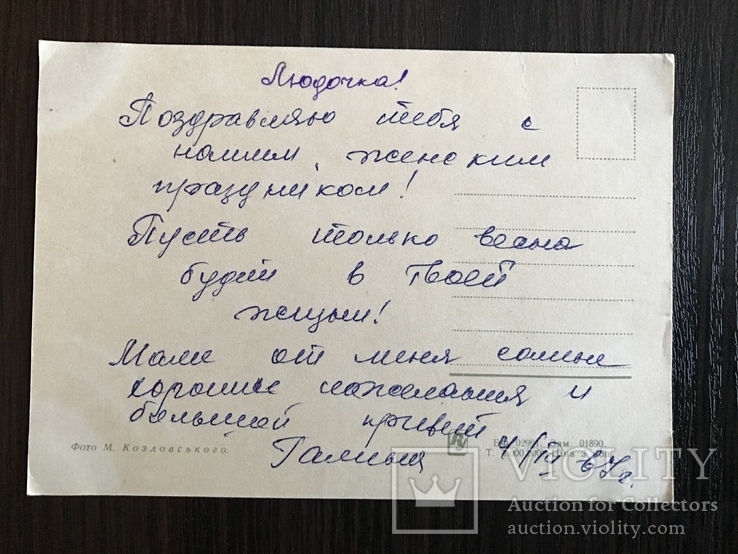 Людочка!
Поздравляю тебя с
нашим женским
праздником!
Пусть только весна
будет в твоей
жизни!
Маме от меня самые
хорошие пожелания и
большой привет
Галина 4/III 67г.
Фото М. Козловського.
БФ 02991. Зам. 01890.
VIOLITY
Auction for Collectors
auction.violity.com